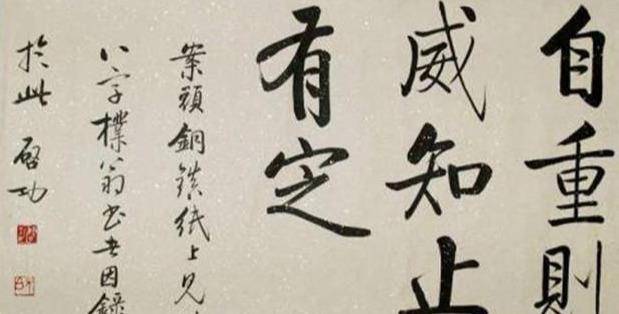 自重則
威知止
有定
案頭銅鎮紙上見
八字樸翁書也因錄
於此 啓功